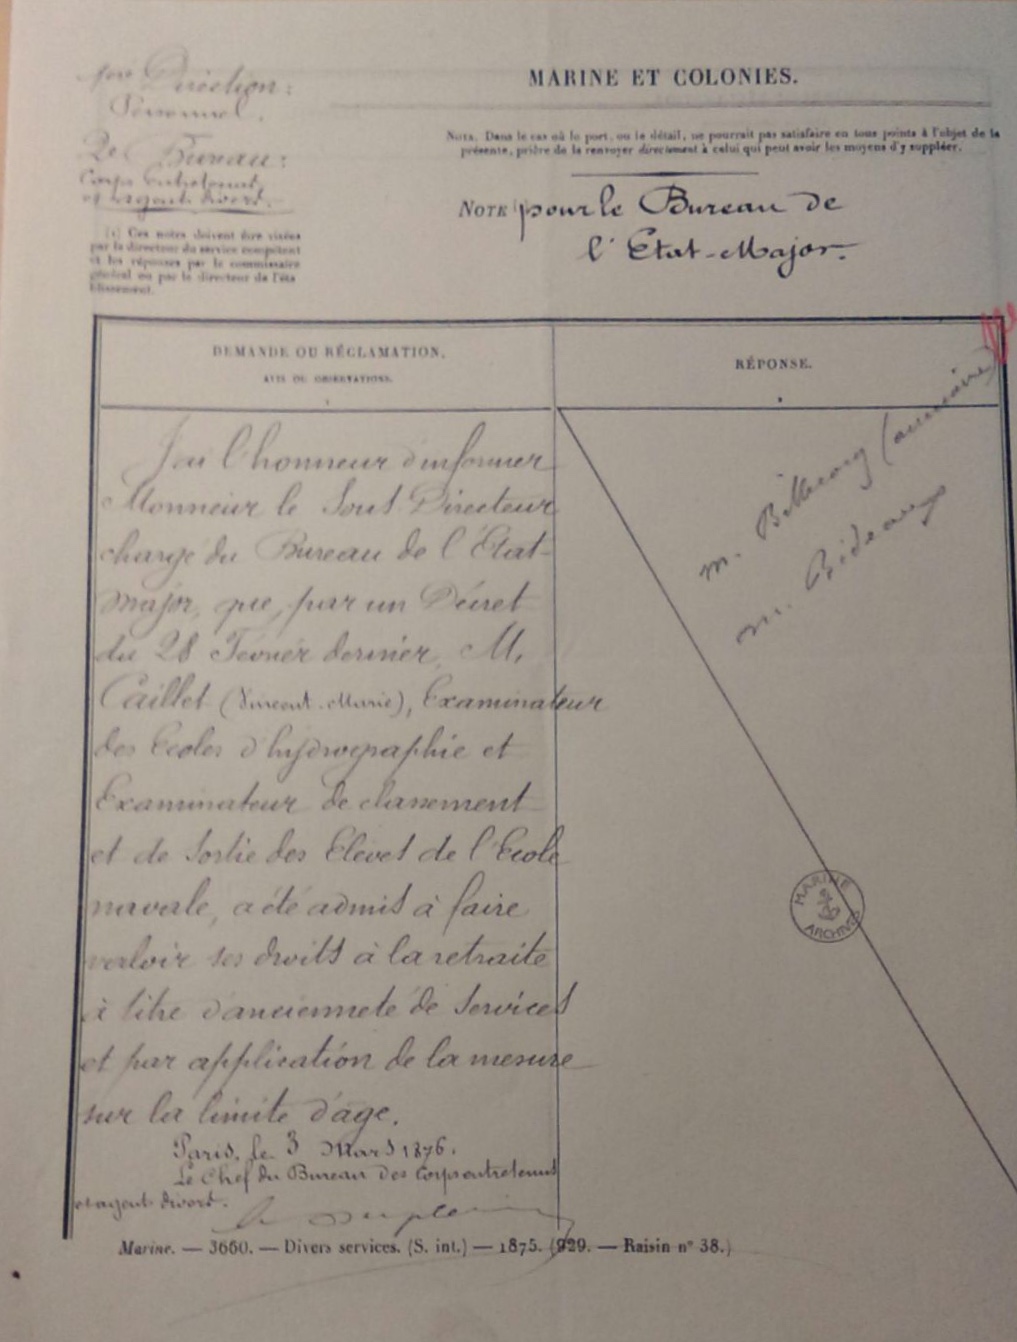 1ère Direction:
Personnel.
2e Bureau:
Corps entretenus
et agents divers.
(1) Ces notes doivent être visées
par le directeur du service compétent
et les réponses par le commissaire
général ou par le directeur de l'éta
blissement.
MARINE ET COLONIES.
NOTA. Dans le cas où le port, ou le détail, ne pourrait pas satisfaire en tous points à l'objet de la
présente, prière de la renvoyer directement à celui qui peut avoir les moyens d'y suppléer.
NOTE pour le Bureau de
l'Etat-Major.
DEMANDE OU RÉCLAMATION,
AVIS OU OBSERVATIONS.
J'ai l'honneur d'informer
Monsieur le Sous Directeur
chargé du Bureau de l'État-
major, que, par un Décret
du 28 Février dernier, M.
Caillet (Vincent-Marie), Examinateur
des Ecoles d'hydrographie et
Examinateur de classement
et de Sortie des Elèves de l'Ecole
navale, a été admis à faire
valoir ses droits à la retraite
à titre d'ancienneté de Services
et par application de la mesure
sur la limite d'âge.
Paris, le 3 Mars 1876.
Le Chef du Bureau des Corps entretenus
et agents divers.
RÉPONSE.
M.
M. Bideaux
MARINE
ARCHIVES
Marine. — 3660. — Divers services. (S. int.) — 1875. (929. — Raisin n° 38.)